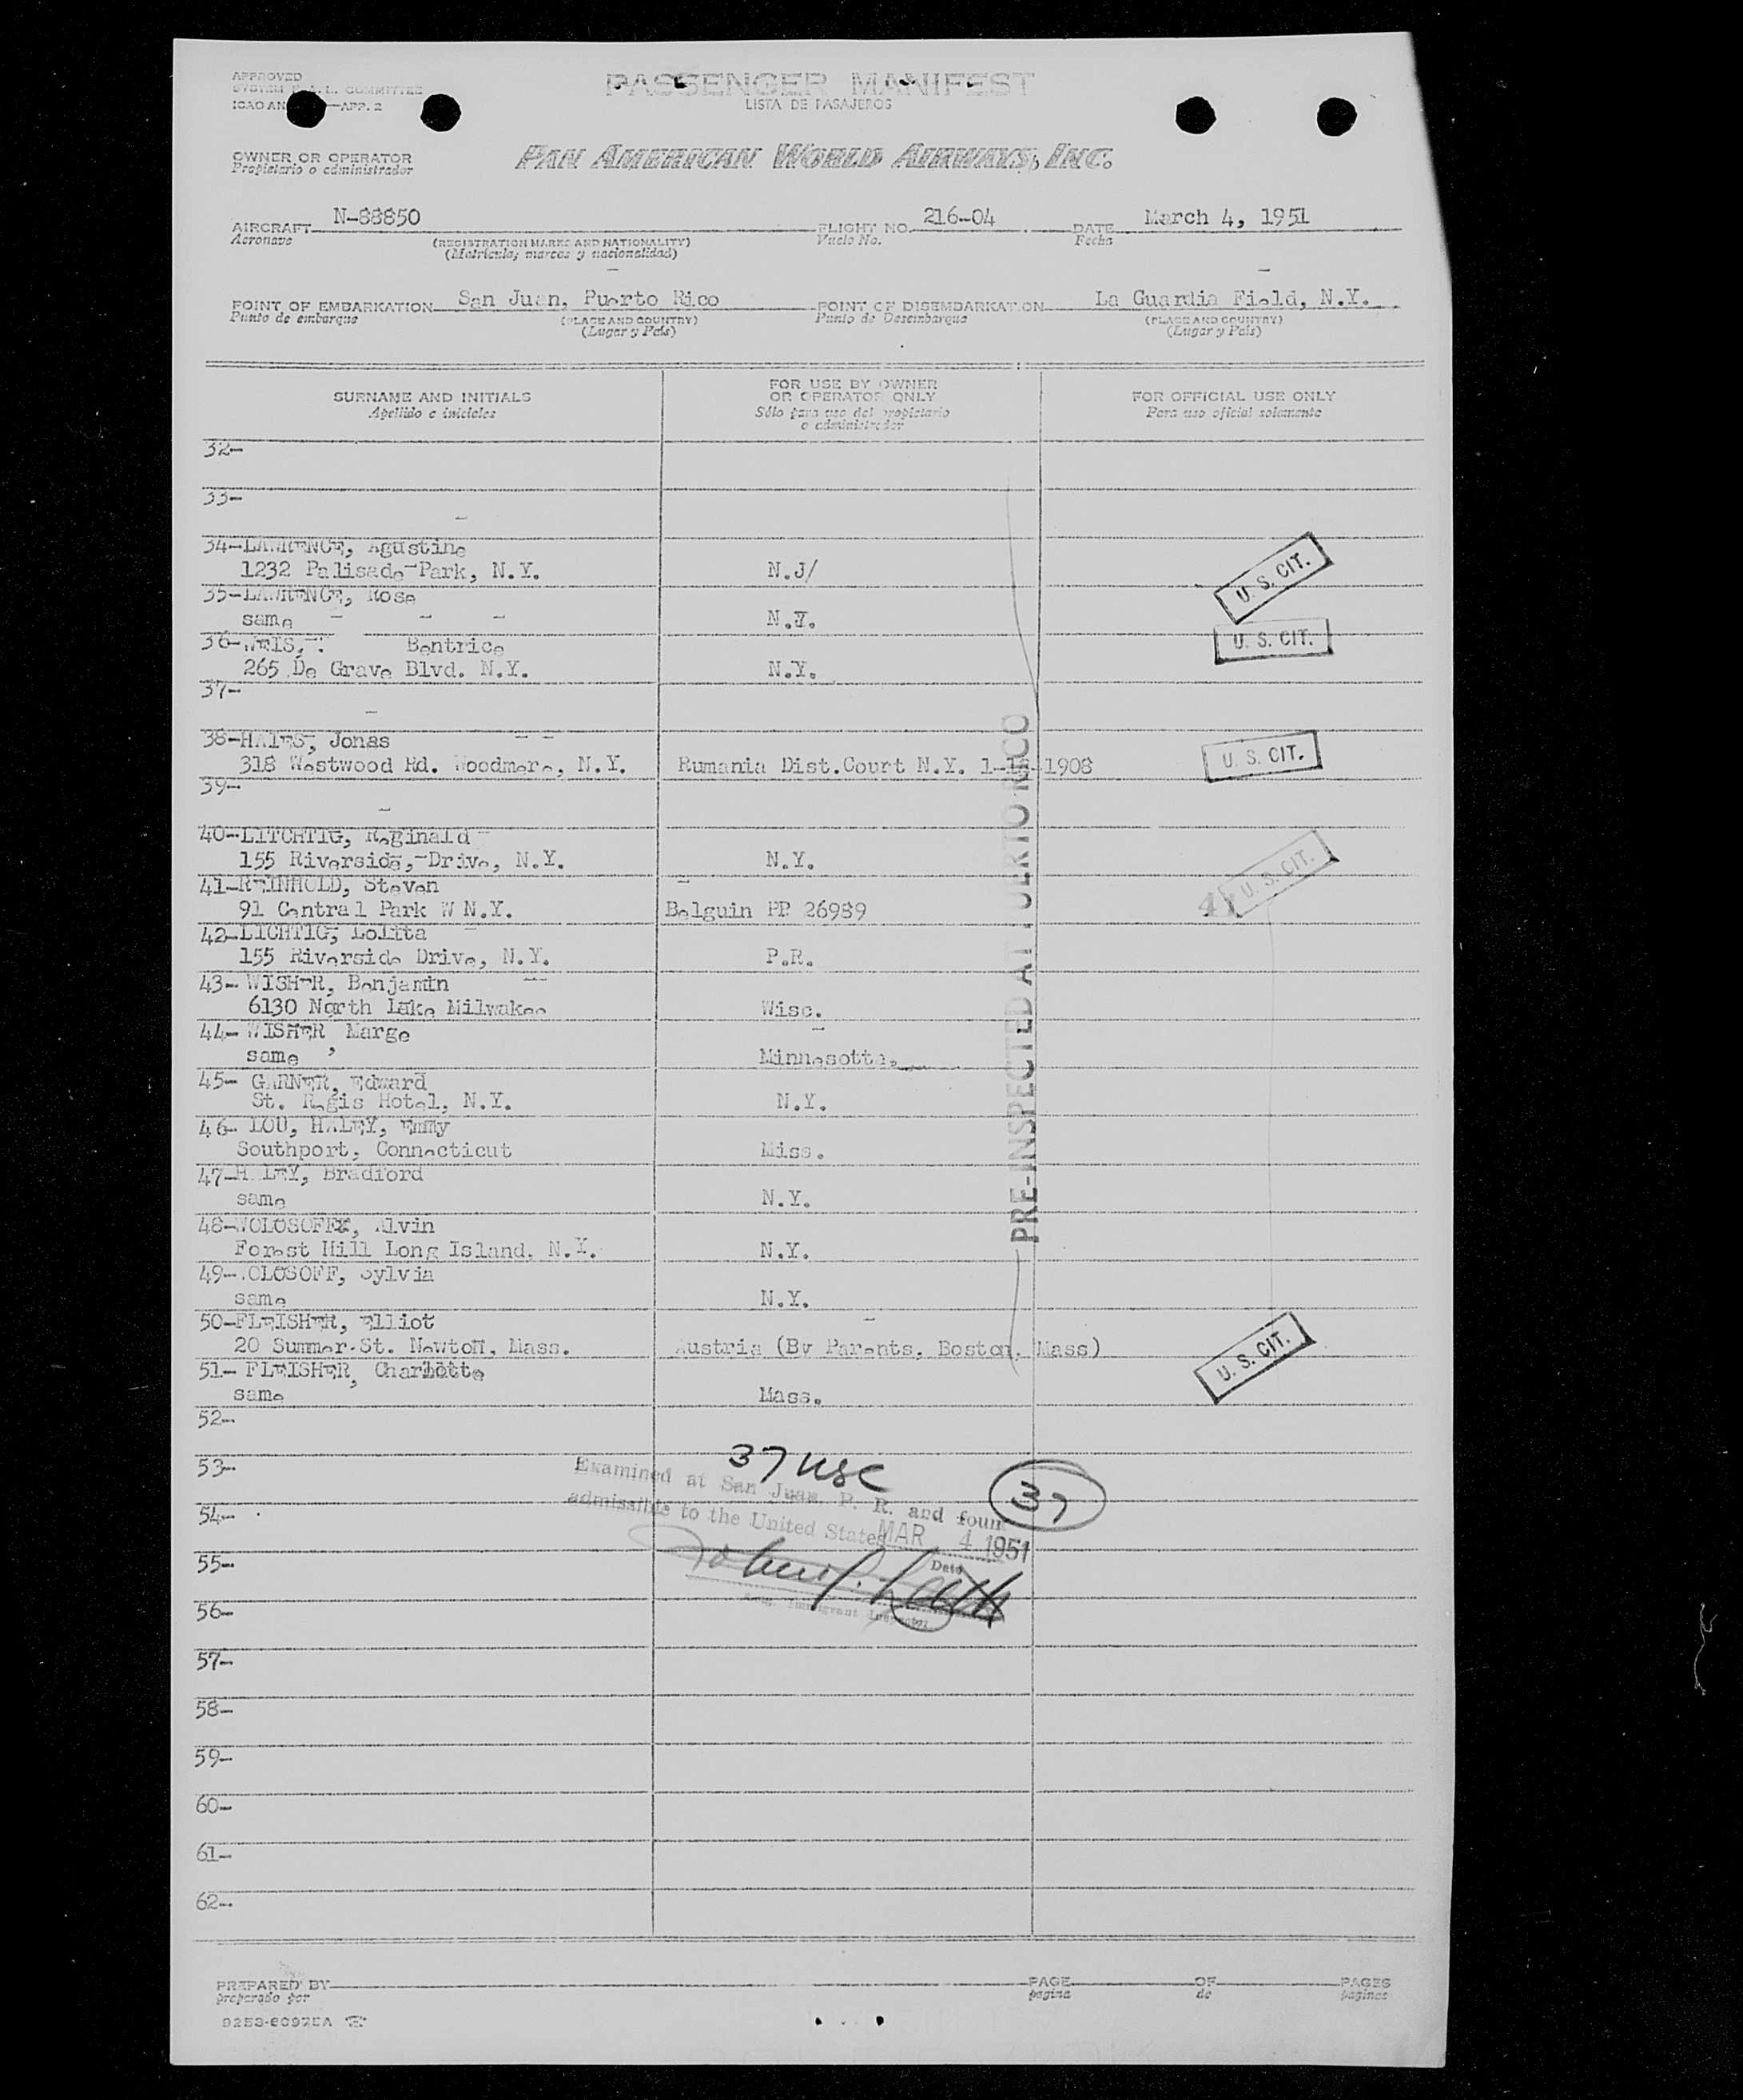 APPROVED
COMMITTEE
ICAO AN APP. 2
PASSENGER MANIFEST
LISTA DE PASAJEROS
OWNER OR OPERATOR
Propietario o administrador
PAN AMERICAN WORLD AIRWAYS, INC.
AIRCRAFT N-88850 FLIGHT NO. 216-04 DATE March 4, 1951
Aeronave (REGISTRATION MARKS AND NATIONALITY) Vuelo No. Fecha
(Matricula, marcas y nacionalidad)
POINT OF EMBARKATION San Juan, Puerto Rico POINT OF DISEMBARKATION La Guardia Field, N.Y.
Punto de embarque (PLACE AND COUNTRY) Punto de Desembarque (PLACE AND COUNTRY)
(Lugar y País) (Lugar y País)
SURNAME AND INITIALS FOR USE BY OWNER OR OPERATOR ONLY FOR OFFICIAL USE ONLY
Apellido e iniciales Sólo para uso del propietario o administrador Para uso oficial solamente
32-
33-
34-LAWRENCE, Agustine
1232 Palisade Park, N.Y. N.J/ U. S. CIT.
35-LAWRENCE, Rose
same N.Y.
36-WEIS, Beatrice U. S. CIT.
265 De Grave Blvd. N.Y. N.Y.
37-
38-HAIES, Jonas
318 Westwood Rd. Woodmere, N.Y. Rumania Dist.Court N.Y. 1- -1908 U. S. CIT.
39-
40-LITCHTIG, Reginald
155 Riverside, Drive, N.Y. N.Y. U. S. CIT.
41-REINHOLD, Steven
91 Central Park W N.Y. Belguin PP 26989 41
42-LICHTIG, Lolita
155 Riverside Drive, N.Y. P.R.
43- WISHER, Benjamin
6130 North Lake Milwakee Wisc.
44- WISHER, Marge
same Minnesotta.
45- GARNER, Edward
St. Regis Hotel, N.Y. N.Y.
46- LOU, HALEY, Emmy
Southport, Connecticut Miss.
47-HALEY, Bradford
same N.Y.
48-WOLOSOFF, Alvin
Forest Hill Long Island, N.Y. N.Y.
49-WOLOSOFF, Sylvia
same N.Y.
50-FLEISHER, Elliot
20 Summer.St. Newton, Mass. Austria (By Parents, Boston, Mass) U. S. CIT.
51- FLEISHER, Charlotte
same Mass.
PRE-INSPECTED AT PUERTO RICO
52-
53- 37 usc
Examined at San Juan, P. R. and found 37
54- admissible to the United States MAR 4 1951
55- Date
56- Immigrant Inspector
57-
58-
59-
60-
61-
62-
PREPARED BY PAGE OF PAGES
preparado por pagina de paginas